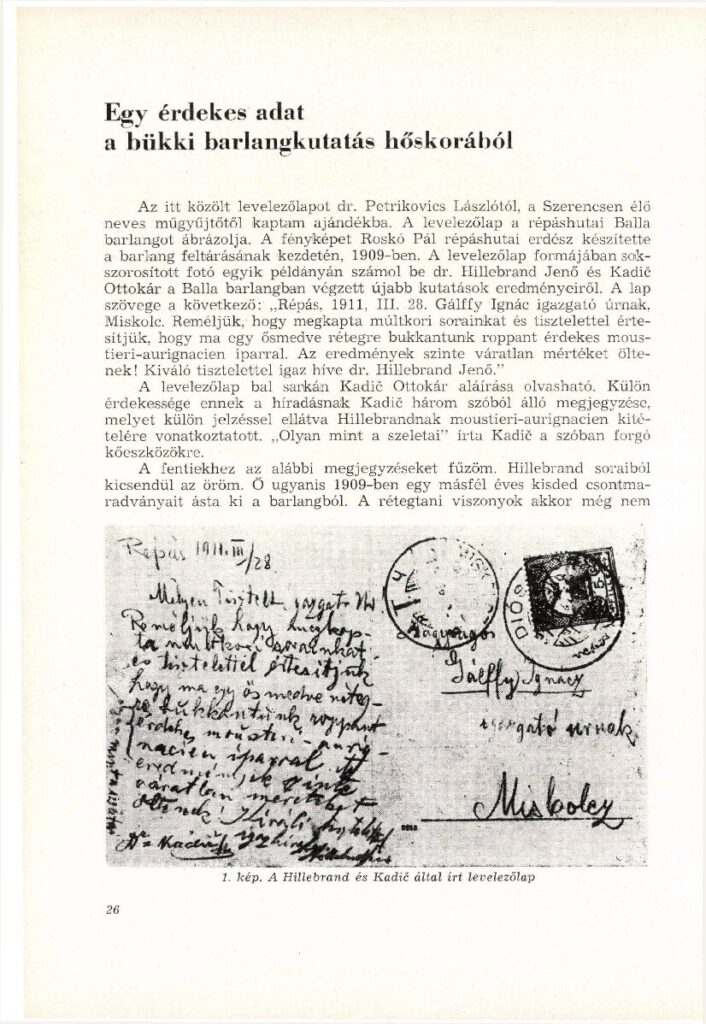 Egy érdekes adat
a bükki barlangkutatás hőskorából
Az itt közölt levelezőlapot dr. Petrikovics Lászlótól, a Szerencsen élő
neves műgyűjtőtől kaptam ajándékba. A levelezőlap a répáshutai Balla
barlangot ábrázolja. A fényképet Roskó Pál répáshutai erdész készítette
a barlang feltárásának kezdetén, 1909-ben. A levelezőlap formájában sok-
szorosított fotó egyik példányán számol be dr. Hillebrand Jenő és Kadič
Ottokár a Balla barlangban végzett újabb kutatások eredményeiről. A lap
szövege a következő: „Répás, 1911, III. 28. Gálffy Ignác igazgató úrnak,
Miskolc. Reméljük, hogy megkapta múltkori sorainkat és tisztelettel érte-
sítjük, hogy ma egy ősmedve rétegre bukkantunk roppant érdekes mous-
tieri-aurignacien iparral. Az eredmények szinte váratlan mértéket ölte-
nek! Kiváló tisztelettel igaz híve dr. Hillebrand Jenő."
A levelezőlap bal sarkán Kadič Ottokár aláírása olvasható. Külön
érdekessége ennek a híradásnak Kadič három szóból álló megjegyzése,
melyet külön jelzéssel ellátva Hillebrandnak moustieri-aurignacien kité-
telére vonatkoztatott. „Olyan mint a szeletai" írta Kadič a szóban forgó
kőeszközökre.
A fentiekhez az alábbi megjegyzéseket fűzöm. Hillebrand soraiból
kicsendül az öröm. Ő ugyanis 1909-ben egy másfél éves kisded csontma-
radványait ásta ki a barlangból. A rétegtani viszonyok akkor még nem
Répás 1911. III/28
Mélyen Tisztelt Igazgató Úr
Reméljük hogy megkap-
ta multkori sorainkat
és tisztelettel értesítjük
hogy ma egy ősmedve réteg-
re bukkantunk roppant
érdekes mousteri-aurig-
nacien iparral
eredmények szinte
váratlan mértéket
öltenek! Kiváló tisztelettel
igaz híve
Dr Kadič
Hillebrand
DIÓS
Nagyságos
Gálffy Ignácz
igazgató urnak
Miskolcz
1. kép. A Hillebrand és Kadič által írt levelezőlap
26